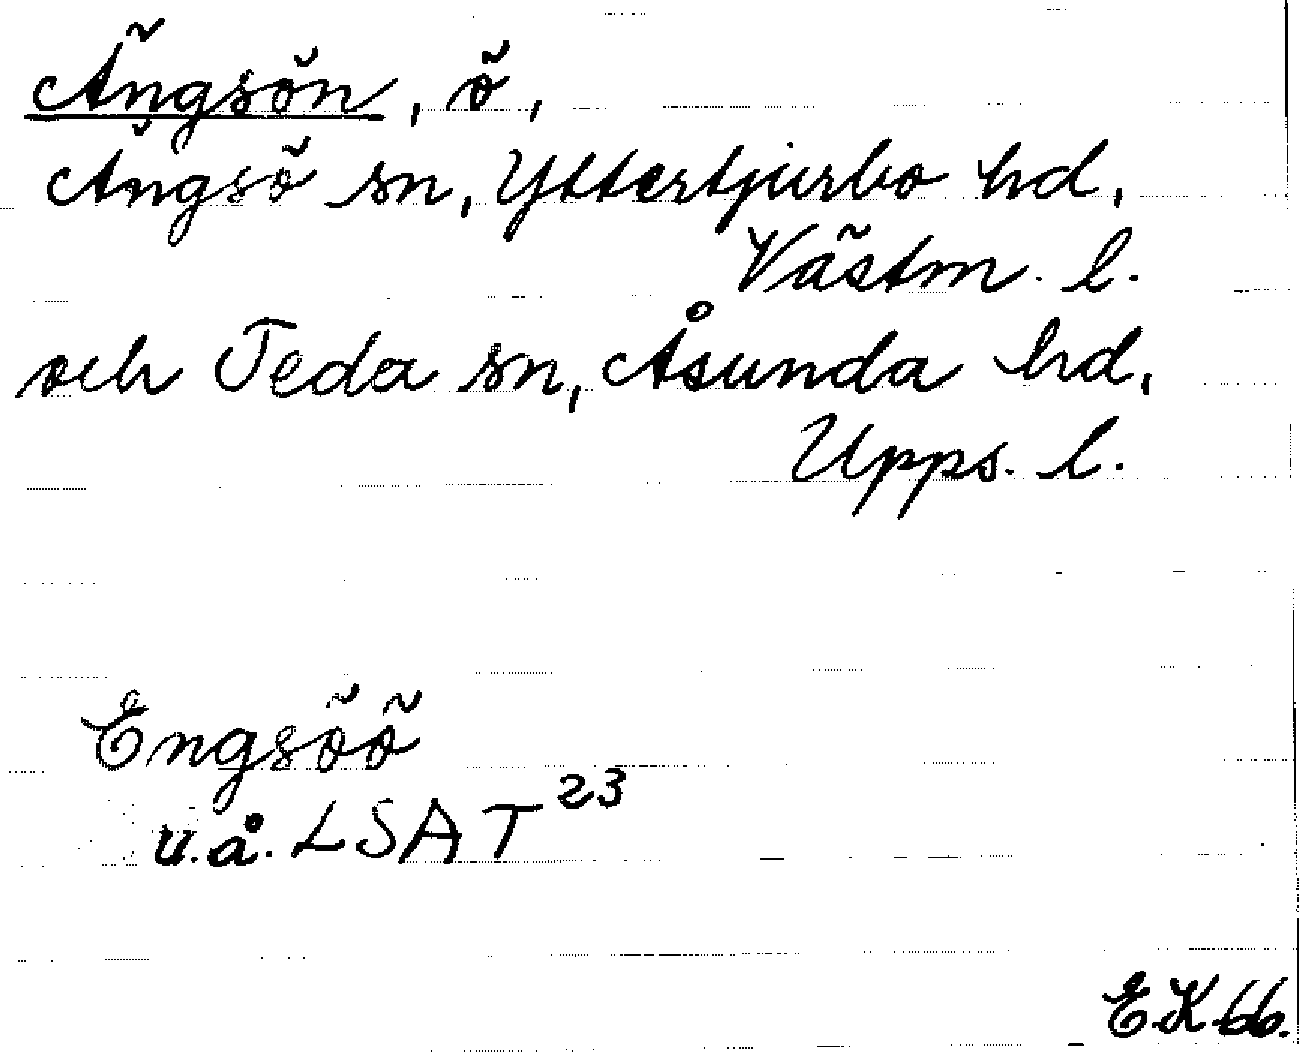 Ängsön, ö,
Ängsö sn, Yttertjurbo hd,
Västm. l.
och Teda sn, Åsunda hd,
Upps. l.
Engsöö
u.å. LSAT 23
E.K 66.